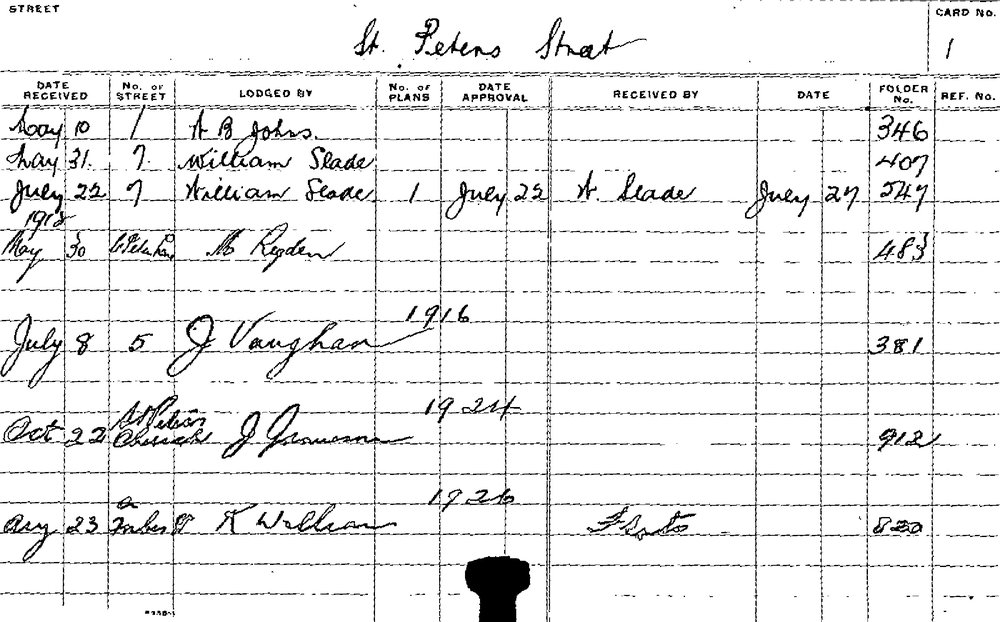 STREET
CARD No.
St. Peters Street
1
DATE RECEIVED No. OF STREET LODGED BY No. OF PLANS DATE APPROVAL RECEIVED BY DATE FOLDER No. REF. No.
May 10 1 A B Johns. 346
May 31. 7. William Slade 407
July 22 7 William Slade 1 July 25 A. Slade July 27 547
1912
May 30 M Regden 483
1916
July 8 5 J Vaughan 381
1924
St Peters
Oct 22 Church J 912
1926
Aug 23 Forbes St K William 820